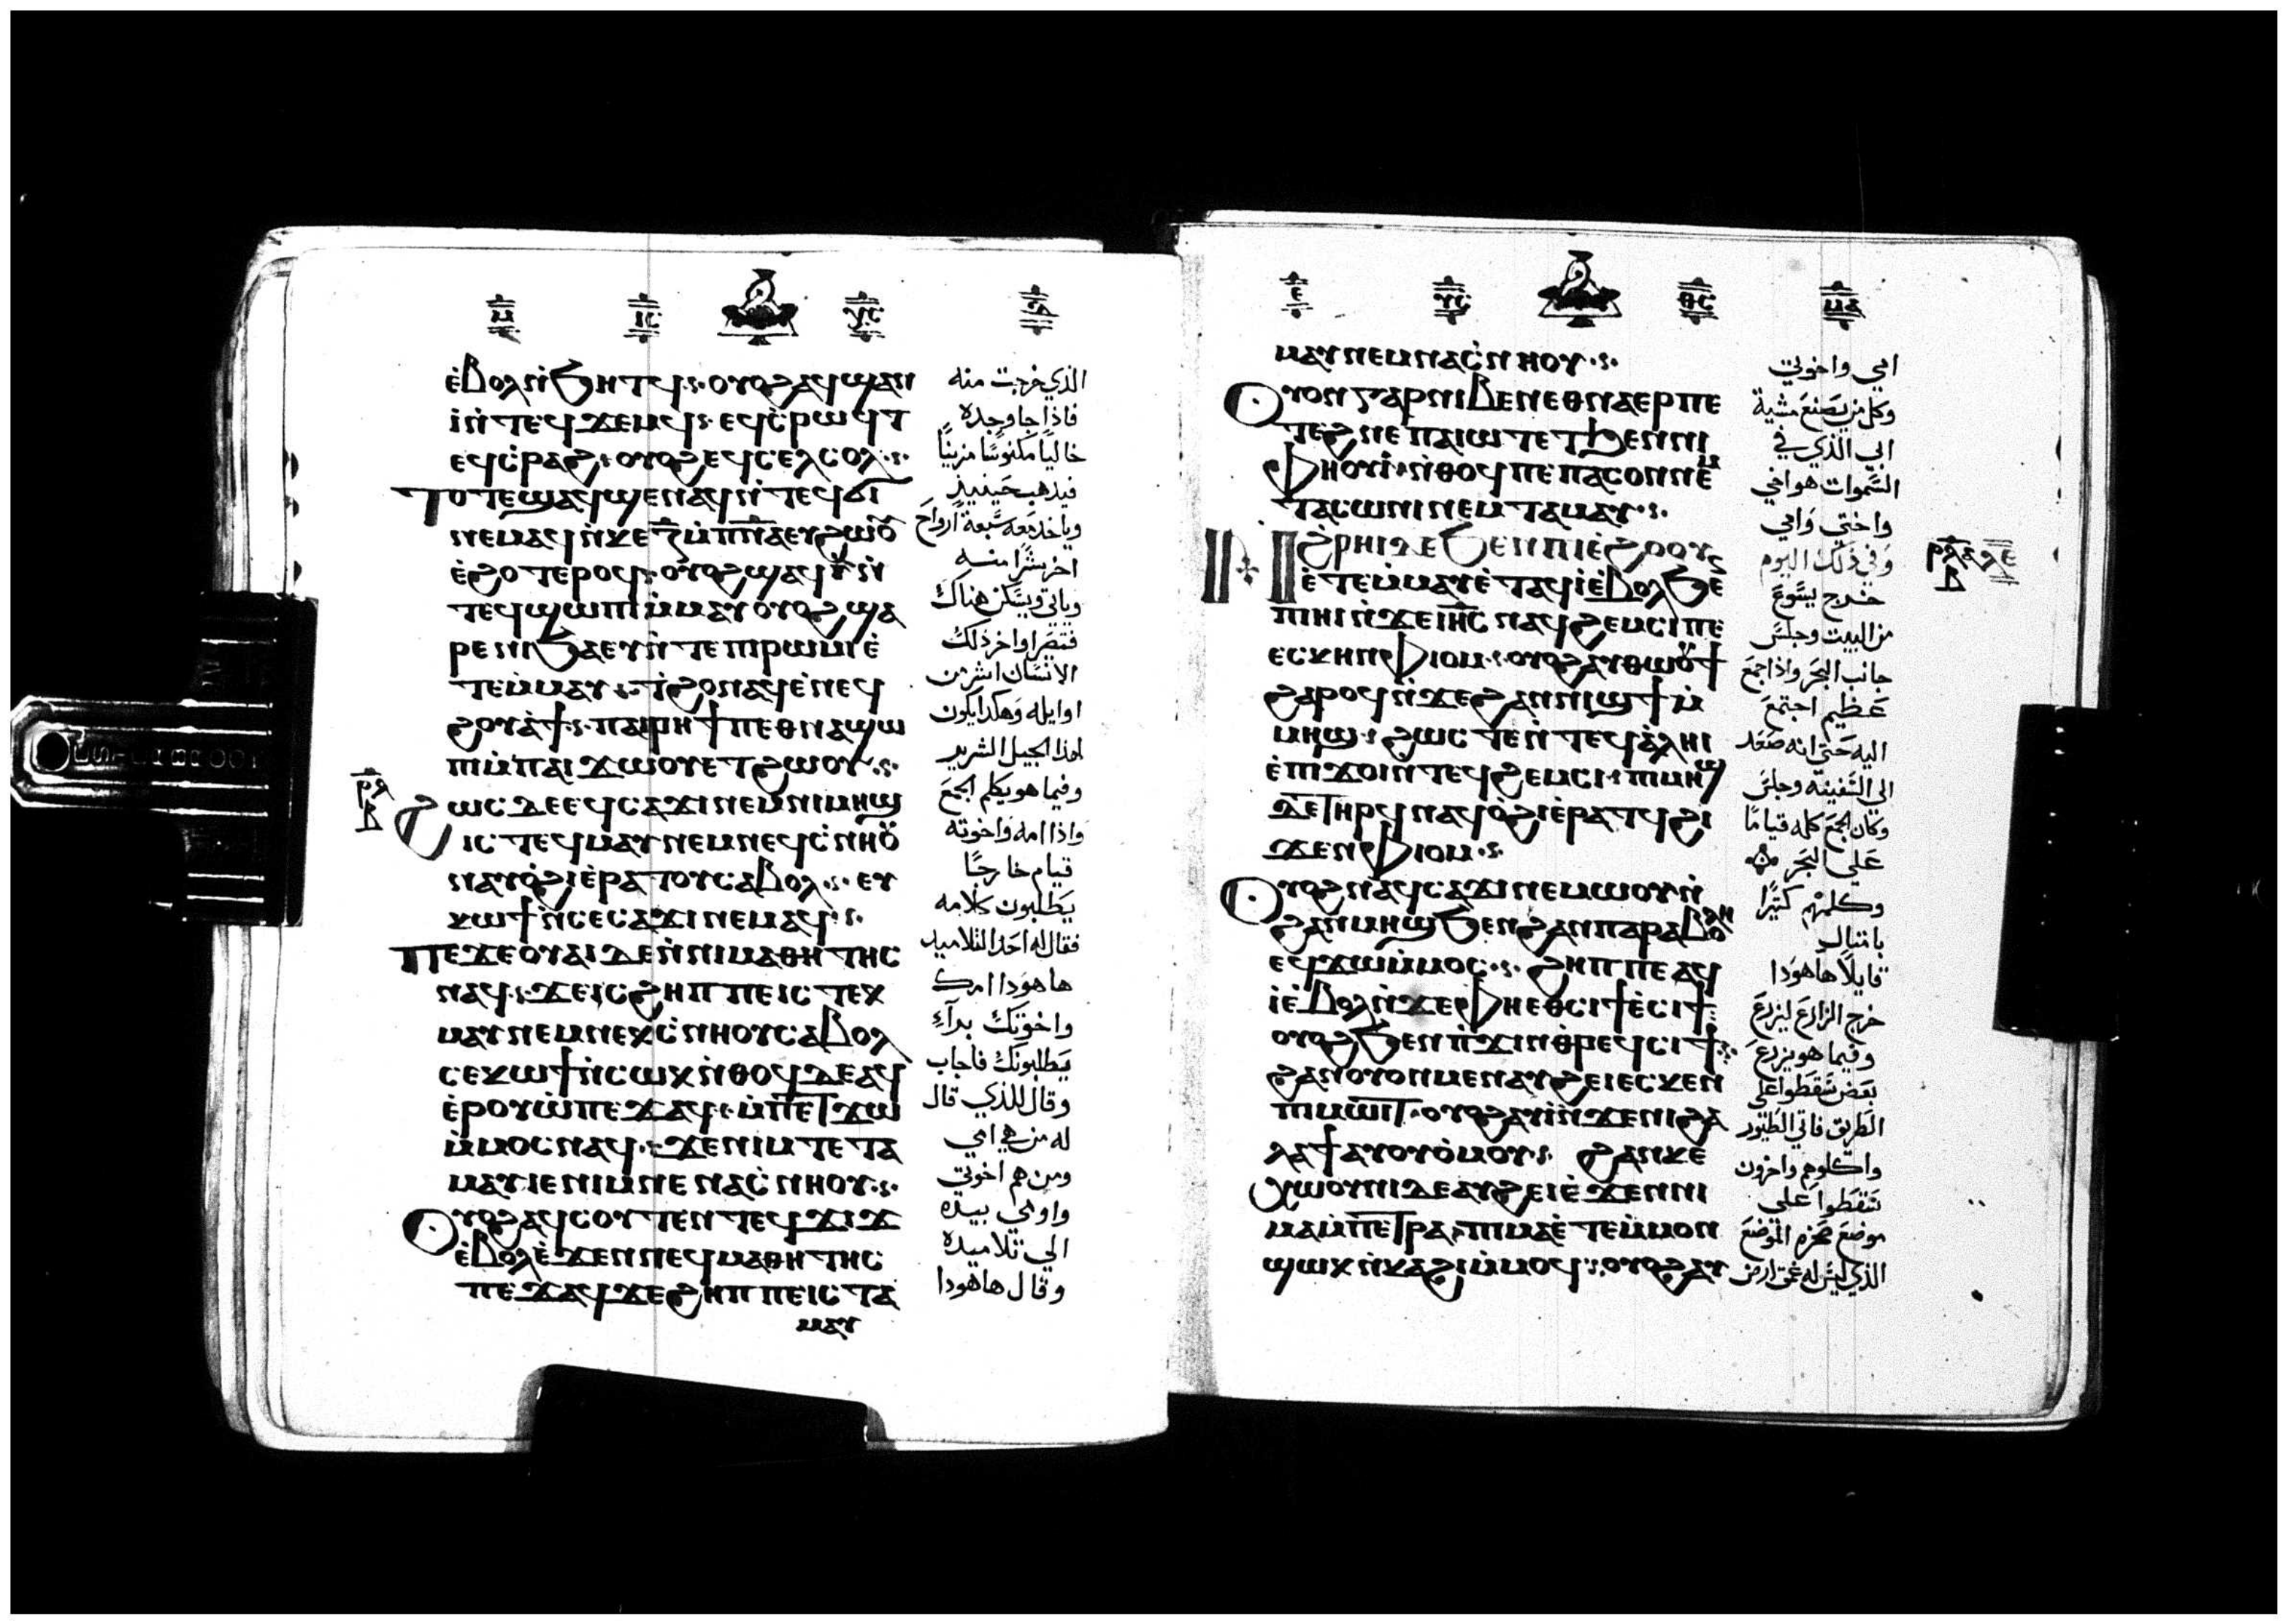 ⲙ ⲓ̅ⲥ̅ ⲩ̅ⲥ̅
ⲉ̀ⲃⲟⲗⲛ̀ϧⲏⲧϥ ⲟⲩⲟϩⲁϥϣⲁⲛ
ⲓ̀ⲛ̀ⲧⲉϥϫⲉⲙϥ ⲉϥⲥ̀ⲣⲱϥⲧ
ⲉϥⲥ̀ⲣⲁϩ ⲟⲩⲟϩⲉϥⲥⲉⲗⲥⲟⲗ
ⲧⲟⲧⲉϣⲁϥϣⲉⲛⲁϥⲛ̀ⲧⲉϥϭⲓ
ⲛⲉⲙⲁϥⲛ̀ⲕⲉⲍ̅ⲙ̀ⲡ̅ⲛ̅ⲁ̅ⲉⲩϩⲱⲟⲩ
ⲉ̀ϩⲟⲧⲉⲣⲟϥ ⲟⲩⲟϩϣⲁϥⲓ̀ⲛ̀
ⲧⲉϥϣⲱⲡⲓⲙ̀ⲙⲁⲩⲟⲩⲟϩϣⲁ
ⲣⲉⲛⲓϧⲁⲉⲩⲛ̀ⲧⲉⲡⲓⲣⲱⲙⲓⲉ̀
ⲧⲉⲙ̀ⲙⲁⲩ ⲧⲓϩⲟⲛⲁϥⲉ̀ⲛⲉϥ
ϩⲟⲩⲁ̀ϯ ⲡⲁⲓⲣⲏϯⲡⲉⲑⲛⲁϣⲱ
ⲡⲓⲙ̀ⲡⲁⲓϫⲱⲟⲩⲉⲧϩⲱⲟⲩ
ϩⲱⲥⲇⲉⲉϥⲥⲁϫⲓⲛⲉⲙⲛⲓⲙⲏϣ
ⲓⲥⲧⲉϥⲙⲁⲩⲛⲉⲙⲛⲉϥⲥ̀ⲛⲏⲟⲩ
ⲛⲁⲩⲟ̀ϩⲓⲉ̀ⲣⲁⲧⲟⲩⲥⲁⲃⲟⲗ ⲉⲩ
ⲕⲱϯⲛ̀ⲥⲉⲥⲁϫⲓⲛⲉⲙⲁϥ
ⲡⲉϫⲉⲟⲩⲁⲓⲇⲉⲛ̀ⲛⲓⲙⲁⲑⲏⲧⲏⲥ
ⲛⲁϥ ϫⲉⲓⲥϩⲏⲡⲡⲉⲓⲥⲧⲉⲕ
ⲙⲁⲩⲛⲉⲙⲛⲉⲕⲥ̀ⲛⲏⲟⲩⲥⲁⲃⲟⲗ
ⲥⲉⲕⲱϯⲛ̀ⲥⲱⲕⲛ̀ⲑⲟϥⲇⲉⲁϥ
ⲉ̀ⲣⲟⲩⲱ̀ⲡⲉϫⲁϥ ⲙ̀ⲡⲉⲧϫⲱ
ⲙ̀ⲙⲟⲥⲛⲁϥ ϫⲉⲛⲓⲙⲧⲉⲧⲁ
ⲙⲁⲩⲓⲉⲛⲓⲙⲛⲉⲛⲁⲥ̀ⲛⲏⲟⲩ
ⲟⲩⲟϩⲁϥⲥⲟⲩⲧⲉⲛⲧⲉϥϫⲓϫ
ⲉ̀ⲃⲟⲗⲉ̀ϫⲉⲛⲛⲉϥⲙⲁⲑⲏⲧⲏⲥ
ⲡⲉϫⲁϥϫⲉϩⲏⲡⲡⲉⲓⲥⲧⲁ
ⲙⲁⲩ
الذي خرجت منه
فاذا جا وجده
خاليا مكنوسًا مزينًا
فيذهب حينيذ
وياخذ معه سبعة ارواح
اخر شرا منه
وياتي ويسكن هناك
فتصير اواخر ذلك
الانسان اشر من
اوايله وهكدا يكون
لهذا الجيل الشرير
وفيما هو يكلم الجمع
واذا امه واخوته
قيام خارجًا
يطلبون كلامه
فقال له احد التلاميد
ها هودا امك
واخوتك برآء
يطلبونك فاجاب
وقال للذي قال
له من هي امي
ومن هم اخوتي
واومي بيده
الي تلاميده
وقال ها هودا
ⲉ ⲩ̅ⲥ̅ ⲑ̅ⲥ̅ ⲙⲁ
ⲙⲁⲩⲛⲉⲙⲛⲁⲥ̀ⲛⲏⲟⲩ
ⲟⲩⲟⲛⲅⲁⲣⲛⲓⲃⲉⲛⲉⲑⲛⲁⲉⲣⲡⲉ
ⲧⲉϩⲛⲉⲡⲁⲓⲱⲧⲉⲧϧⲉⲛⲛⲓ
ⲫⲏⲟⲩⲓ̀ ⲛ̀ⲑⲟϥⲡⲉⲡⲁⲥⲟⲛⲛⲉⲙ
ⲧⲁⲥⲱⲛⲓⲛⲉⲙⲧⲁⲙⲁⲩ
ⲛ̀ϩⲣⲏⲓⲇⲉϧⲉⲛⲡⲓⲉ̀ϩⲟⲟⲩ
ⲉ̀ⲧⲉⲙ̀ⲙⲁⲩⲉ̀ⲧⲁϥⲓ̀ⲉ̀ⲃⲟⲗϧⲉ
ⲡⲏⲓⲛ̀ϫⲉⲓⲏ̅ⲥ̅ ⲛⲁϥϩⲉⲙⲥⲓⲡⲉ
ⲉⲥⲕⲏⲛⲫⲓⲟⲙ ⲟⲩⲟϩⲁⲩⲑⲱⲟⲩϯ
ϩⲁⲣⲟϥⲛ̀ϫⲉϩⲁⲛⲛⲓϣϯⲙ̀
ⲙⲏϣ ϩⲱⲥⲧⲉⲛ̀ⲧⲉϥⲁ̀ⲗⲏⲓ
ⲉ̀ⲡⲓϫⲟⲓⲛ̀ⲧⲉϥϩⲉⲙⲥⲓ ⲡⲓⲙⲏϣ
ⲇⲉⲧⲏⲣϥⲛⲁϥⲟ̀ϩⲓⲉ̀ⲣⲁⲧϥϩⲓ
ϫⲉⲛⲫⲓⲟⲙ
ⲟⲩⲟϩⲛⲁϥⲥⲁϫⲓⲛⲉⲙⲱⲟⲩⲛ̀
ϩⲁⲛⲙⲏϣϧⲉⲛϩⲁⲛⲡⲁⲣⲁⲃⲟⲗⲏ
ⲉϥϫⲱⲙ̀ⲙⲟⲥ ϩⲏⲡⲡⲉⲁϥ
ⲓ̀ⲉ̀ⲃⲟⲗⲛ̀ϫⲉⲫⲏⲉⲑⲥⲓϯⲉ̀ⲥⲓϯ
ⲟⲩⲟϩϧⲉⲛⲡ̀ϫⲓⲛⲑ̀ⲣⲉϥⲥⲓϯ
ϩⲁⲛⲟⲩⲟⲛⲙⲉⲛⲁⲩϩⲉⲓⲉⲥⲕⲉⲛ
ⲡⲓⲙⲱⲓⲧ ⲟⲩⲟϩⲁⲩⲓ̀ⲛ̀ϫⲉⲛⲓϩⲁ
ⲗⲁϯⲁⲩⲟⲩⲟ̀ⲙⲟⲩ ϩⲁⲛⲕⲉ
ⲭⲱⲟⲩⲛⲓⲇⲉⲁⲩϩⲉⲓⲉ̀ϫⲉⲛⲛⲓ
ⲙⲁⲙ̀ⲡⲉⲧⲣⲁ ⲡⲓⲙⲁⲉ̀ⲧⲉⲙ̀ⲙⲟⲛ
ϣⲱⲕⲛ̀ⲕⲁϩⲓⲙ̀ⲙⲟϥ ⲟⲩⲟϩⲁⲩ
امي واخوتي
وكل من يصنع مشية
ابي الذي في
السموات هو اخي
واختي وامي
وفي ذلك اليوم
خرج يسوع
من البيت وجلس
جانب البحر واذا جمع
عظيم اجتمع
اليه حتي انه صعد
الي السفينه وجلس
وكان الجمع كله قيامًا
علي البحر
وكلمهم كتيرًا
بامتال
قايلًا ها هودا
خرج الزارع ليزرع
وفيما هو يزرع
بعض سقطوا علي
الطريق فاتي الطيور
واكلوهم واخرون
سقطوا علي
موضع صخره الموضع
الذي ليس له عمق ارض